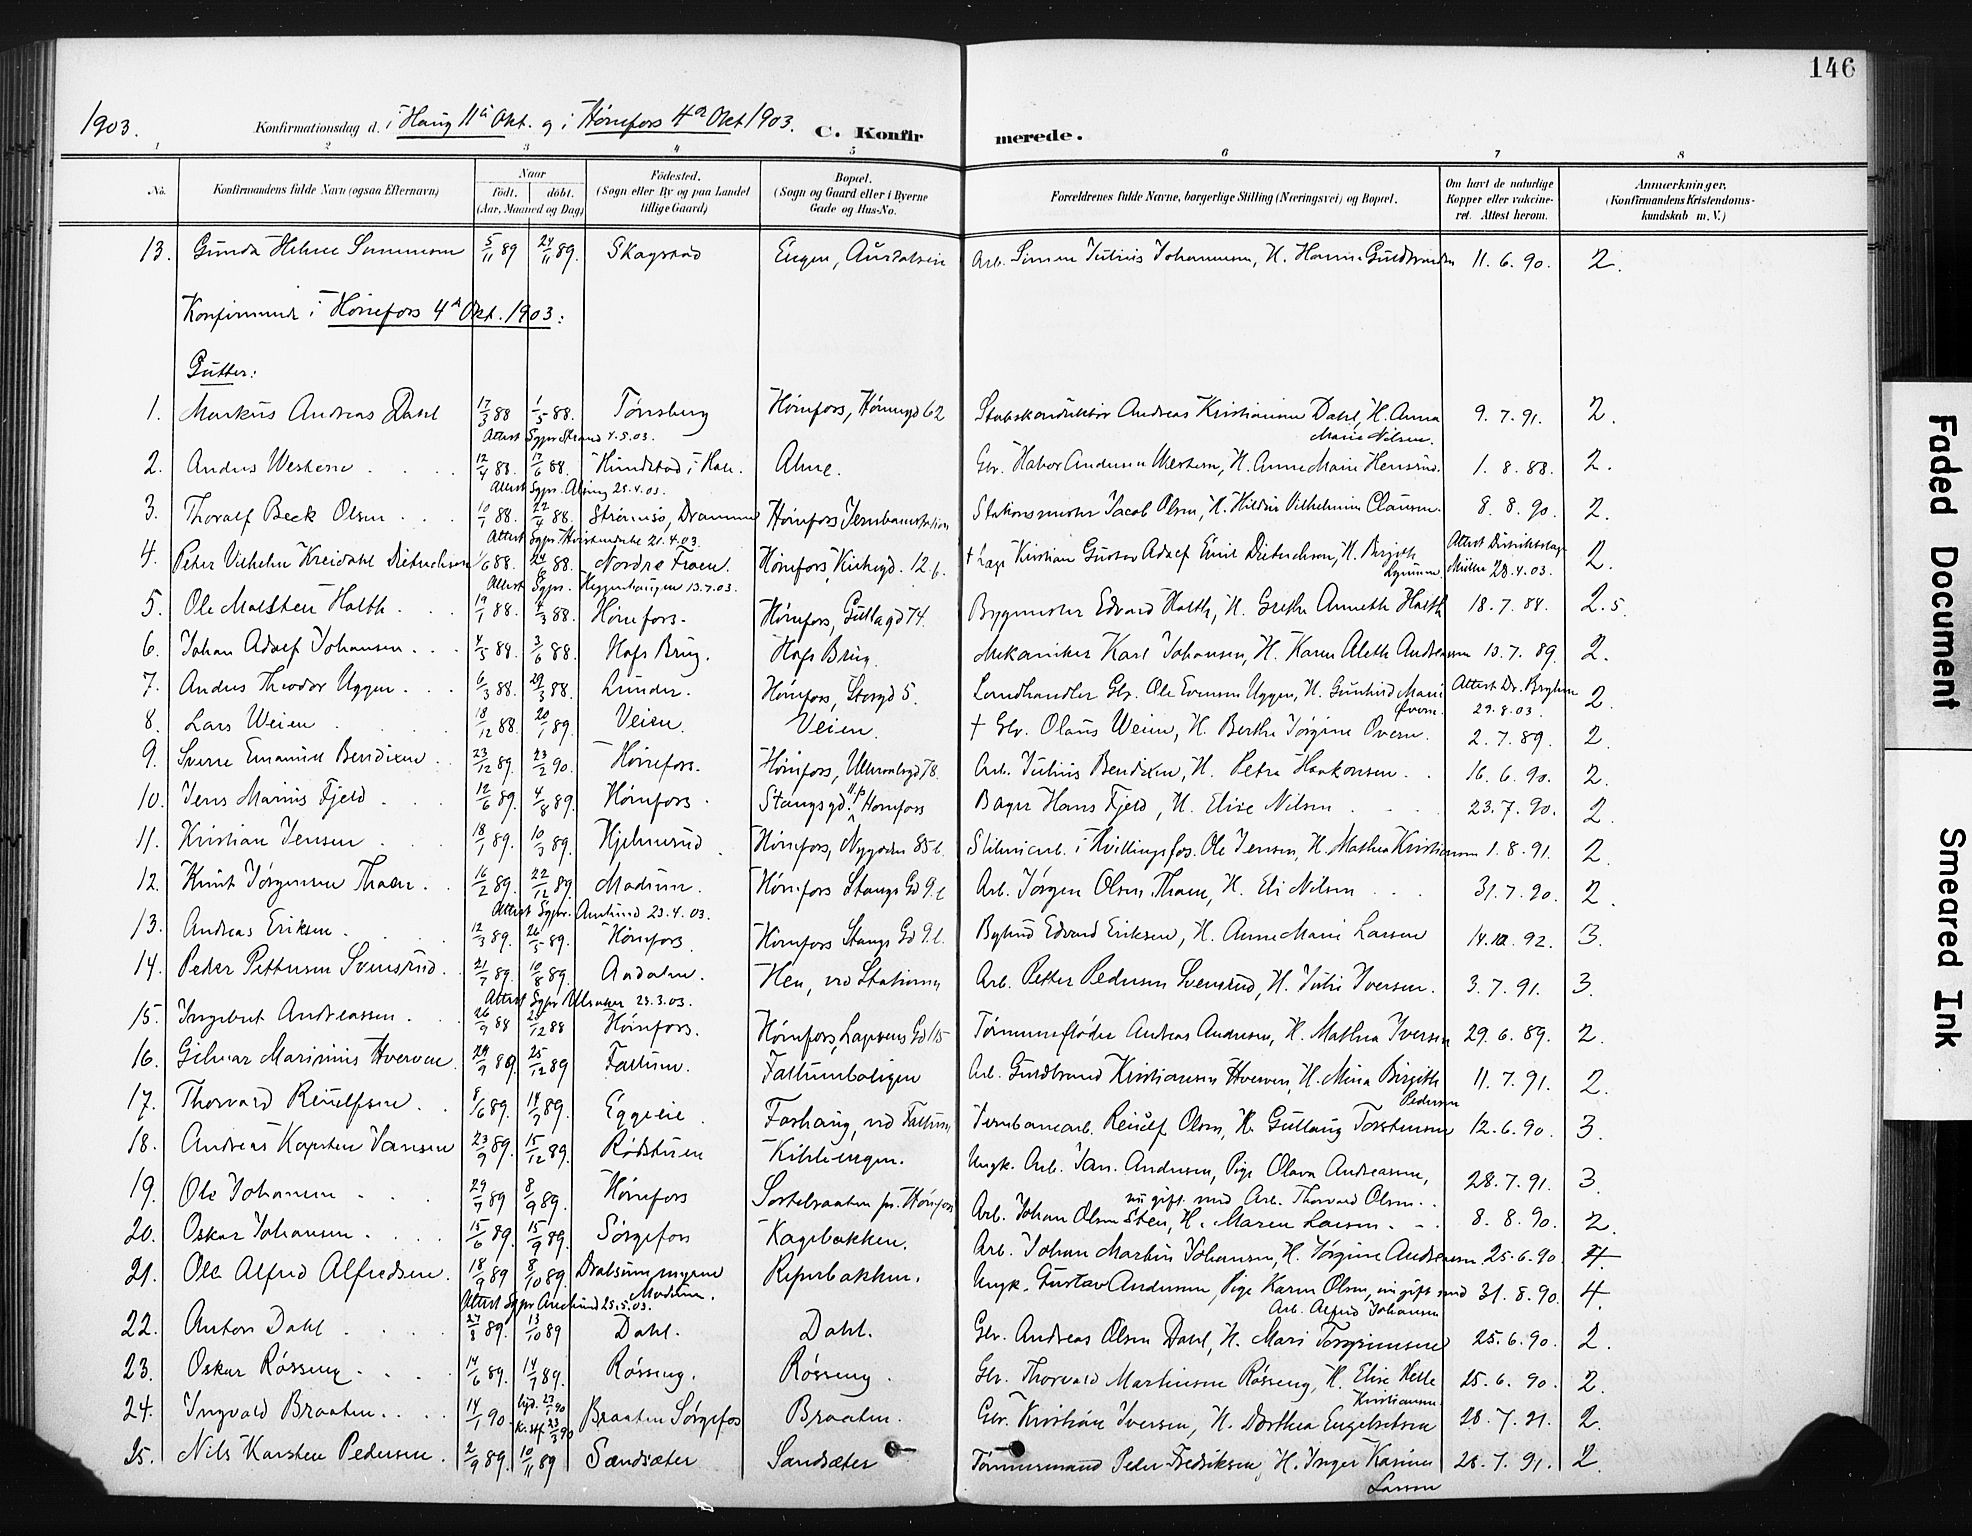 146
1903. Konfirmationsdag d. i Haug 11te Okt. og i Hönefos 4de Okt 1903. C. Konfirmerede.
1 2 3 4 5 6 7 8
No. Konfirmandens fulde Navn (ogsaa Efternavn) Naar født. døbt. (Aar, Maaned og Dag) Fødested. (Sogn eller By og paa Landet tillige Gaard) Bopæl. (Sogn og Gaard eller i Byerne Gade og Hus-No. Forældrenes fulde Navne, borgerlige Stilling (Næringsvei) og Bopæl. Om havt de naturlige Kopper eller vaccineret. Attest herom. Anmærkninger. (Konfirmandens Kristendomskundskab m. V.)
13. Gunda Helene 5/11 89 24/11 89. Engen, Arb. Simen Julius Johannesen, H. 11.6.90. 2.
Hönefos 4de Okt. 1903:
Gutter:
1. Markus Andreas Dahl 17/3 88 1/5 88. Tönsberg Hönefos, 62 Andreas Kristiansen Dahl, H. Anna Marie Nilsen. 9.7.91. 2.
Attest Sgpr Strand 4.5.03.
2. Anders Western 12/4 88. 17/6 88. i Hole. Almе. Gbr. Halvor Andersen Western, H. Anne Marie 1.8.88. 2.
Attest Sgpr. 25.4.03.
3. Thoralf Beck Olsen 10/1 88. 22/4 88. Strömsö, Drammen Hönefos Jernbanestation Stationsmester Jacob Olsen, H. Hilda Vilhelmine Clausen. 8.8.90. 2.
Attest Sgpr. 21.4.03.
4. Peter Vilhelm Kreidahl Dietrichson 1/6 88. 24/6 88. Nordre Fron. Hönefos, Kirkegd. 12b. † Læge Kristian Gustav Adolf Emil Dietrichson, H. Birgith Attest Distriktslæge Müller 28.4.03. 2.
Attest Sgpr. 13.7.03.
5. Ole Halth. 19/1 88. 4/3 88. Hönefos. Hönefos, Gullagd 74. Bygmester Edvard Halth, H. Grethe Annette Halth 18.7.88. 2.5
6. Johan Adolf Johansen. 4/5 88. 3/6 88. Hofs Brug. Hofs Brug. Mekaniker Karl Johansen, H. Karen Alethe Andersen 13.7.89. 2.
7. Anders Theodor Uggen. 6/3 88. 29/3 88. Lunder. Hönefos, Storgd 5. Landhandler Gbr. Ole Evensen Uggen, H. Gunhild Marie Övern. Attest Dr. 29.8.03. 2.
8. Lars Weien 18/12 88. 20/1 89. Veien. Veien. † Gbr. Olaus Weien, H. Berthe Jörgine Overn. 2.7.89. 2.
9. Sverre Emanuel Bendixen 23/12 89. 23/2 90. Hönefos. Hönefos, 78. Arb. Julius Bendixen, H. Petra Haakonsen. 16.6.90. 2.
10. Jens Marius Fjeld 12/6 89. 4/8 89. Hönefos. Stangsgd. Hönefos Bager Hans Fjeld, H. Elise Nilsen 23.7.90. 2.
11. Kristian Jensen 18/1 89. 10/3 89. Hjelmerud Hönefos, Nygaden 85b. Sliberiarb. i Hvillingfos. Ole Jensen, H. Mathea Kristiansen 1.8.91. 2.
12. Knut Jörgensen Thoen. 16/2 89. 22/12 89 Modum. Hönefos Stangs Gd 9.b Arb. Jörgen Olsen Thoen, H. Eli Nilsen 31.7.90. 2.
Attest Sgpr. 23.4.03.
13. Andreas Eriksen. 12/3 89. 26/5 89. Hönefos. Hönefos Stangs Gd 9.b. Edvard Eriksen, H. Anne Marie Larsen 14.10.92. 3.
14. Peder Pettersen Svensrud. 21/7 89. 10/8 89. Aadalen. Hen, ved Stationen Arb. Petter Pedersen Svensrud, H. Julie Iversen. 3.7.91. 3.
Attest Sgpr Ullnæss 23.3.03.
15. Ingebret Andreassen. 26/9 88 26/12 88 Hönefos. Hönefos, Gd 115 Tömmerfløder Andreas Andersen, H. Mathea Iversen 29.6.89. 2.
16. Gilmar Marinius Hverven. 29/9 89. 25/12 89 Follum. Follumboligen Arb. Gundbrand Kristiansen Hverven, H. Mina Birgithe Pedersen 11.7.91. 2.
17. Thorvard Reiulfsen. 8/6 89. 14/7 89. Eggeeie. Foshaug, ved Follum Jernbanearb. Reiulf Olsen, H. Gullaug Torstensen 12.6.90. 3.
18. Andreas Karsten Jansen 23/9 89. 15/12 89. Rödstuen Kihleengen. Ungk. Arb. Jan. Andersen, Pige Olava Andreassen, nu gift med Arb. Thorvald Olsen. 28.7.91. 3.
19. Ole Johansen 29/7 89 8/9 89. Hönefos Arb. Johan Olsen Sten, H. Maren Larsen. 8.8.90. 2.
20. Oskar Johansen. 15/6 89. 15/9 89. Sörgefos Kagebakken. Arb. Johan Martin Johansen, H. Jörgine Andersen 25.6.90 4.
21. Ole Alfred Alfredsen. 18/9 89 8/10 89 Modum. Reperbakken. Ungk. Gustav Andersen, Pige Karen Olsen, nu gift med Arb. Alfred Johansen 31.8.90. 4.
Attest Sgpr 25.5.03.
22. Anton Dahl 27/8 89. 13/10 89 Dahl. Dahl. Gbr. Andreas Olsen Dahl, H. Mari Torgrimsen 25.6.90. 2.
23. Oskar Rösseng. 14/6 89. 14/7 89. Rösseng. Rösseng. Gbr. Thorvald Martinsen Rösseng, H. Elise Helle Kristiansen 25.6.90. 2.
24. Ingvald Braaten. 14/1 90. Braaten Sörgefos Braaten. Gbr. Kristian Iversen, H. Dorthea Engebretsen 28.7.91. 2.
25. Nils Karsten Pedersen. 2/9 89. 10/11 89 Sandsæter Sandsæter Tömmermand Peder Fredriksen, H. Inger Karine Larsen 28.7.91. 2.
Faded Document
Smeared Ink